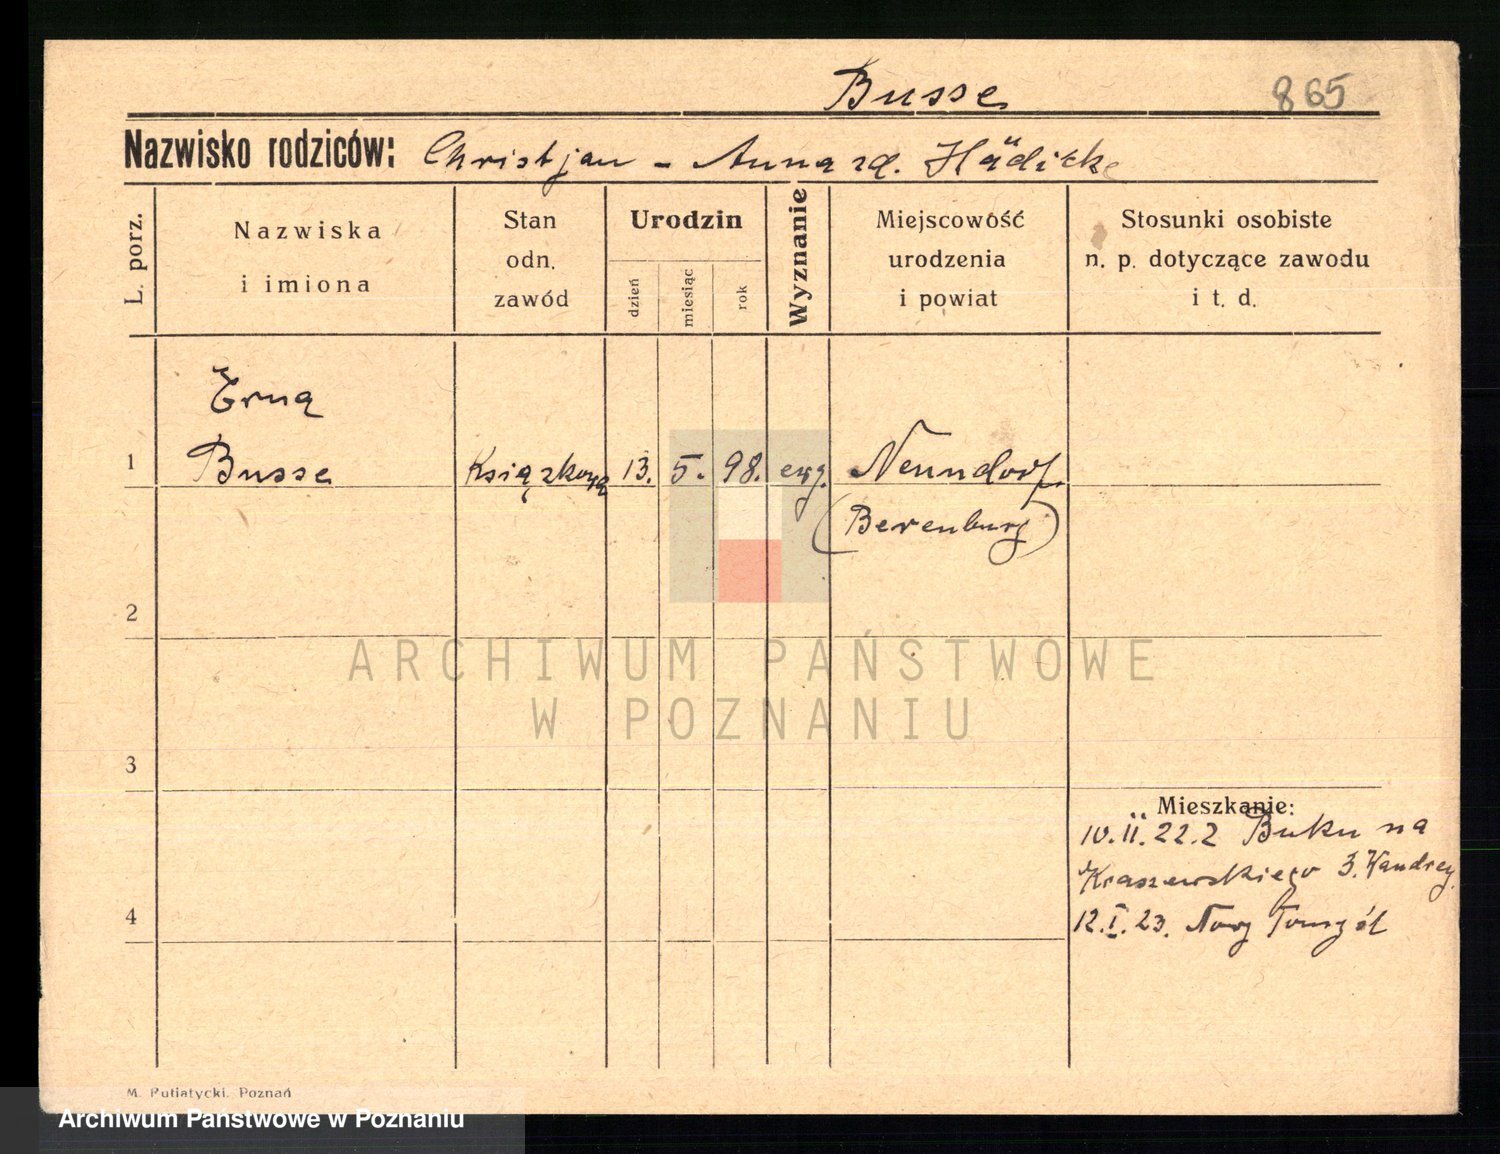 Busse 865
Nazwisko rodziców: Christjan - Anna zd. Hädicke
L. porz.
Nazwiska
i imiona
Stan
odn.
zawód
Urodzin
dzień
miesiąc
rok
Wyznanie
Miejscowość
urodzenia
i powiat
Stosunki osobiste
n. p. dotyczące zawodu
i t. d.
Erna
1 Busse Książkowa 13. 5. 98. ewg. Neundorf.
(Berenburg)
2
ARCHIWUM PAŃSTWOWE
W POZNANIU
3
Mieszkanie:
10.II.22. z Buku na
Kraszewskiego 3.
4 12.I.23. Nowy Tomyśl
M. Putiatycki. Poznań
Archiwum Państwowe w Poznaniu